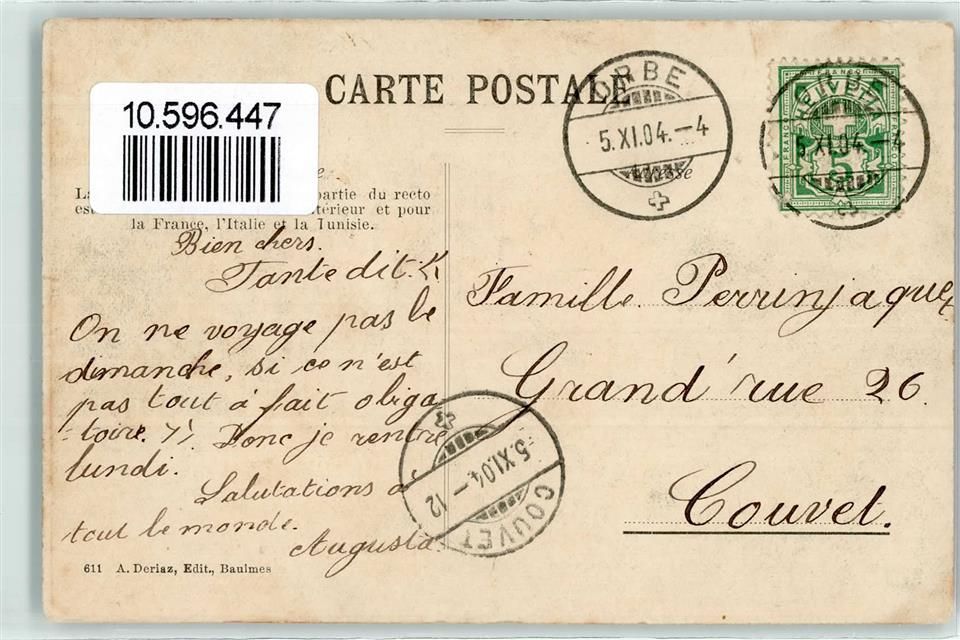 10.596.447
CARTE POSTALE
La partie du recto
térieur et pour
la France, l'Italie et la Tunisie.
Adresse
ORBE
5.XI.04.-4
HELVETIA
FRANCO
5.XI.04.-4
Bien chers.
Tante dit: «
On ne voyage pas le
dimanche, si ce n'est
pas tout à fait obliga
-toire.»! Donc je rentre
lundi.
Salutations à
tout le monde.
Augusta
Famille Perrinjaquet
Grand'rue 26.
Couvet.
5.XI.04.-12
COUVET
611 A. Deriaz, Edit., Baulmes